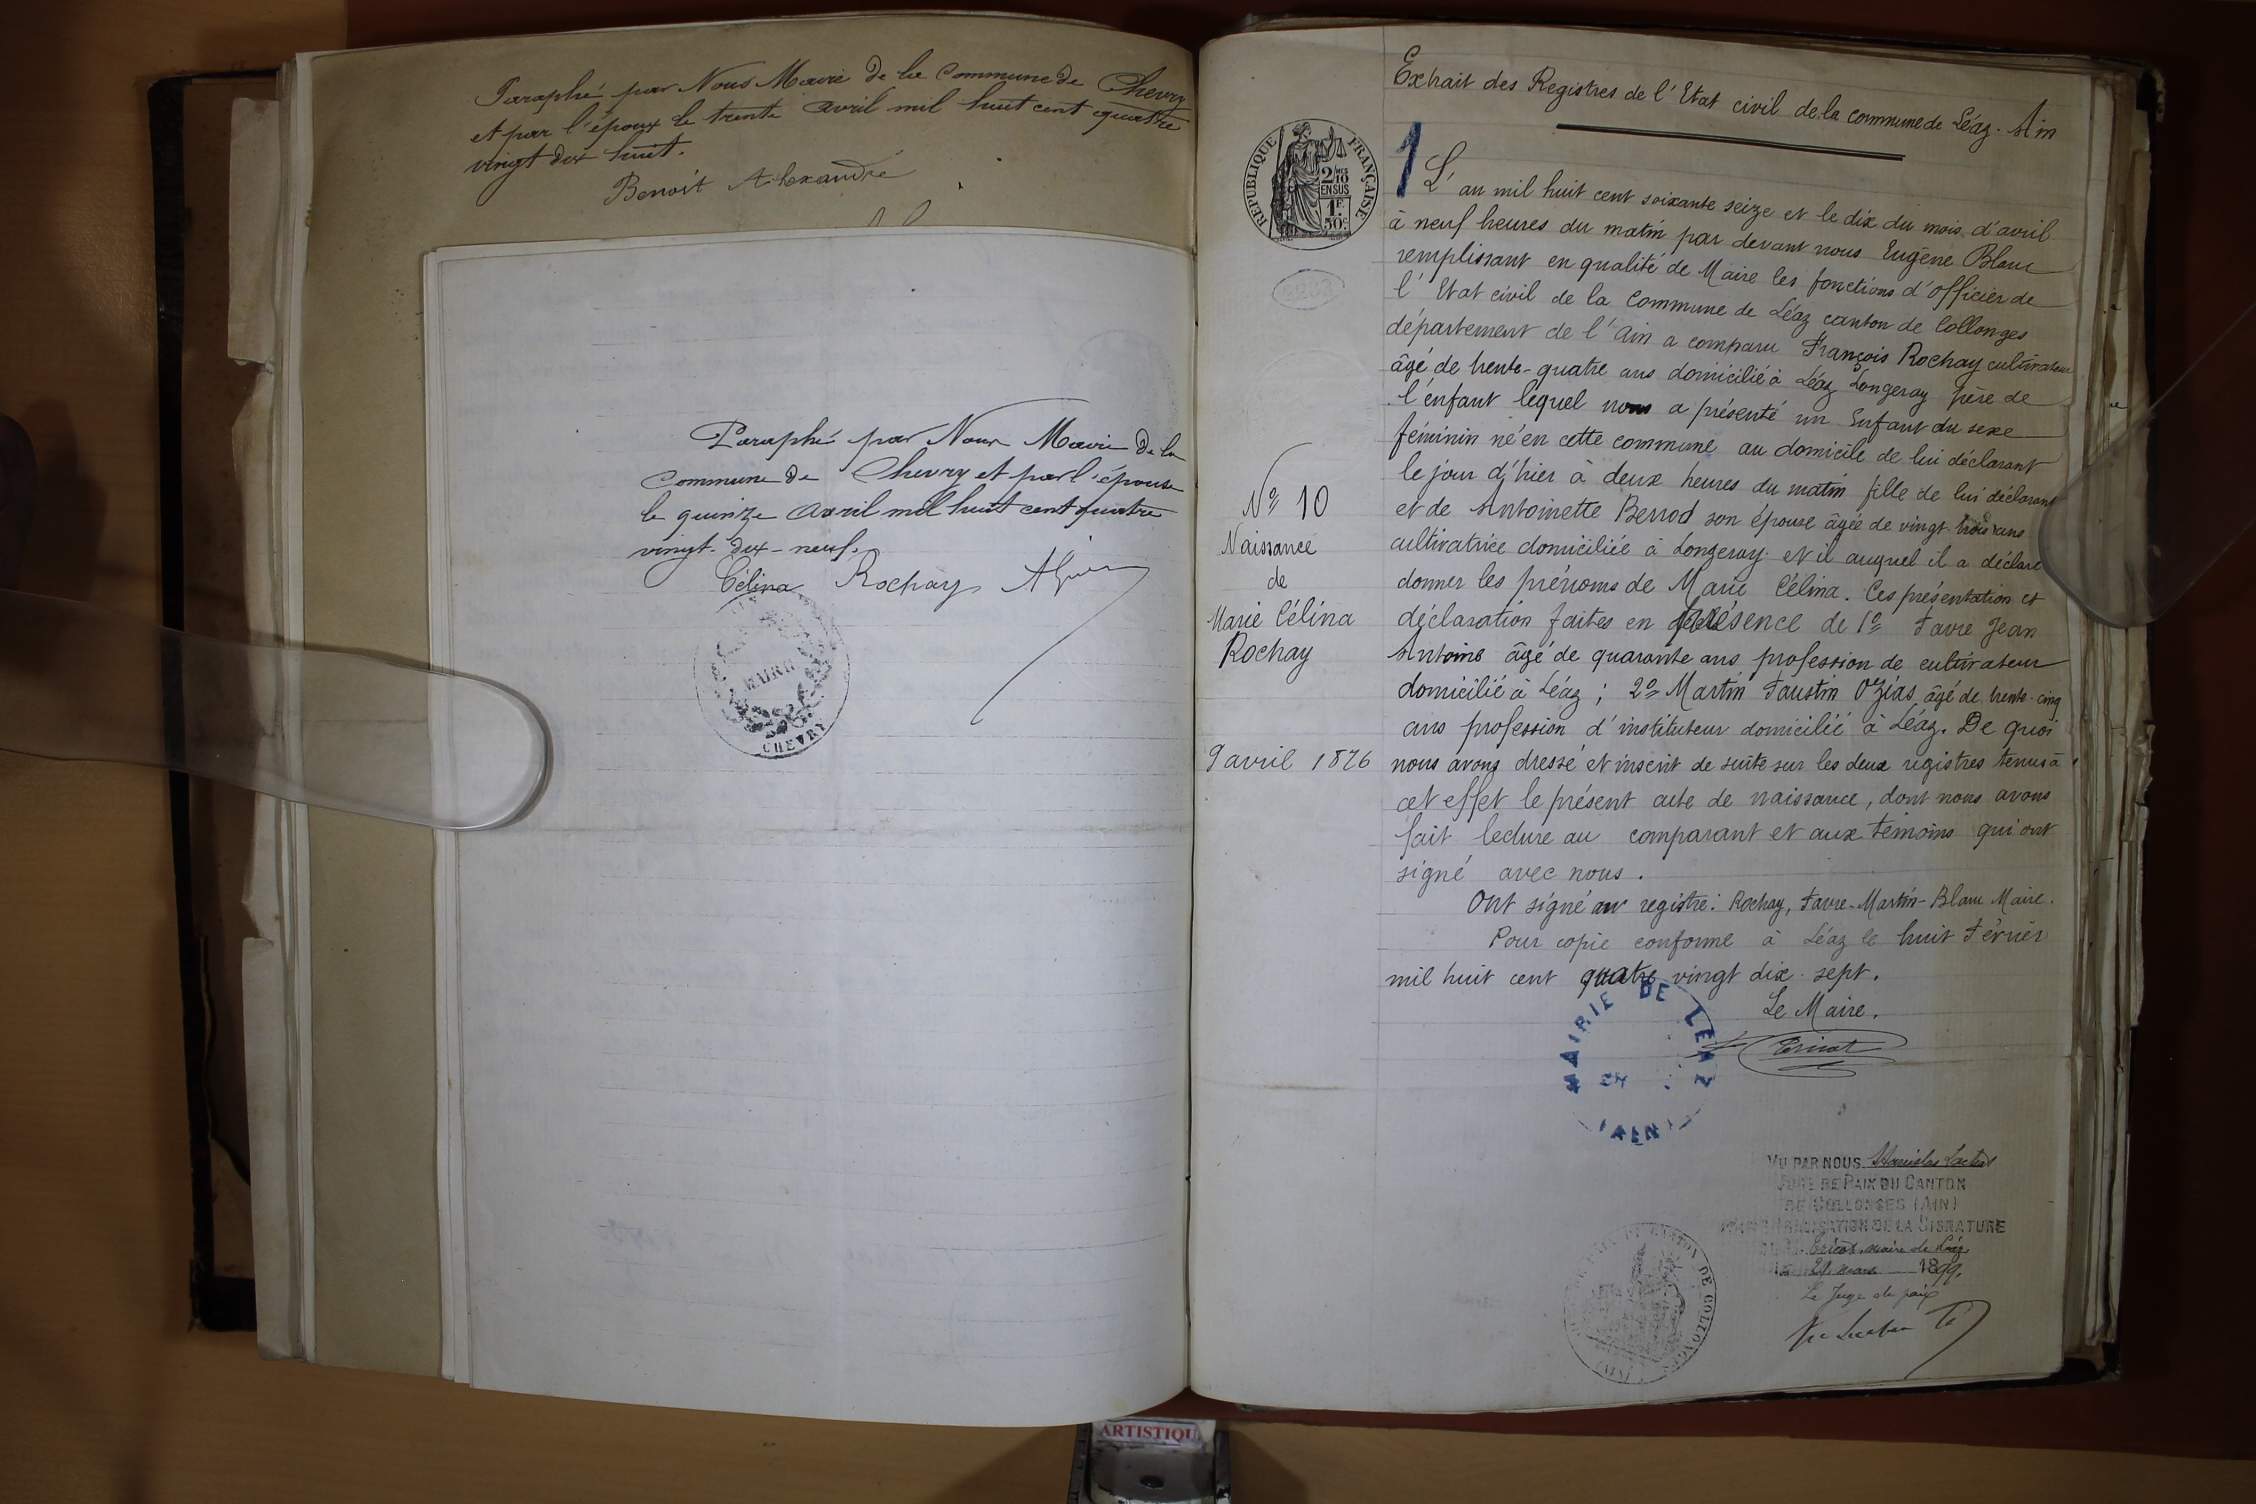 Paraphé par Nous Maire de la Commune de Chevry
et par l'époux le trente avril mil huit cent quatre
vingt dix huit.
Benoit Alexandre
Paraphé par Nous Maire de la
Commune de Chevry et par l'épouse
le quinze avril mil huit cent quatre
vingt-dix-neuf.
Célina Rochay
MAIRIE
CHEVRY
Extrait des Registres de l'Etat civil de la commune de Léaz. Ain
REPUBLIQUE FRANÇAISE
2/10 MES
EN SUS
1F
50c
1
L'an mil huit cent soixante seize et le dix du mois d'avril
à neuf heures du matin par devant nous Eugène Blanc
remplissant en qualité de Maire les fonctions d'officier de
l'Etat civil de la Commune de Léaz canton de Collonges
département de l'Ain a comparu François Rochay cultivateur
âgé de trente-quatre ans domicilié à Léaz Longeray père de
l'enfant lequel nous a présenté un Enfant du sexe
féminin né en cette commune au domicile de lui déclarant
le jour d'hier à deux heures du matin fille de lui déclarant
et de Antoinette Berrod son épouse âgée de vingt-trois ans
cultivatrice domiciliée à Longeray et il auquel il a déclaré
donner les prénoms de Marie Célina. Ces présentation et
déclaration faites en présence de 1º Favre Jean
Antoine âgé de quarante ans profession de cultivateur
domicilié à Léaz ; 2º Martin Faustin Ozias âgé de trente-cinq
ans profession d'instituteur domicilié à Léaz. De quoi
nous avons dressé et inscrit de suite sur les deux registres tenus à
cet effet le présent acte de naissance, dont nous avons
fait lecture au comparant et aux témoins qui ont
signé avec nous.
Ont signé au registre: Rochay, Favre-Martin-Blanc Maire.
Pour copie conforme à Léaz le huit Février
mil huit cent quatre vingt dix-sept.
Le Maire.
Nº 10
Naissance
de
Marie Célina
Rochay
9 avril 1876
MAIRIE DE LEAZ
(AIN)
VU PAR NOUS Stanislas
JUGE DE PAIX DU CANTON
DE COLLONGES (AIN)
LÉGALISATION DE LA SIGNATURE
maire de Léaz
mars 1899.
Le Juge de paix
CANTON DE COLLONGES
(AIN)
ARTISTIQU